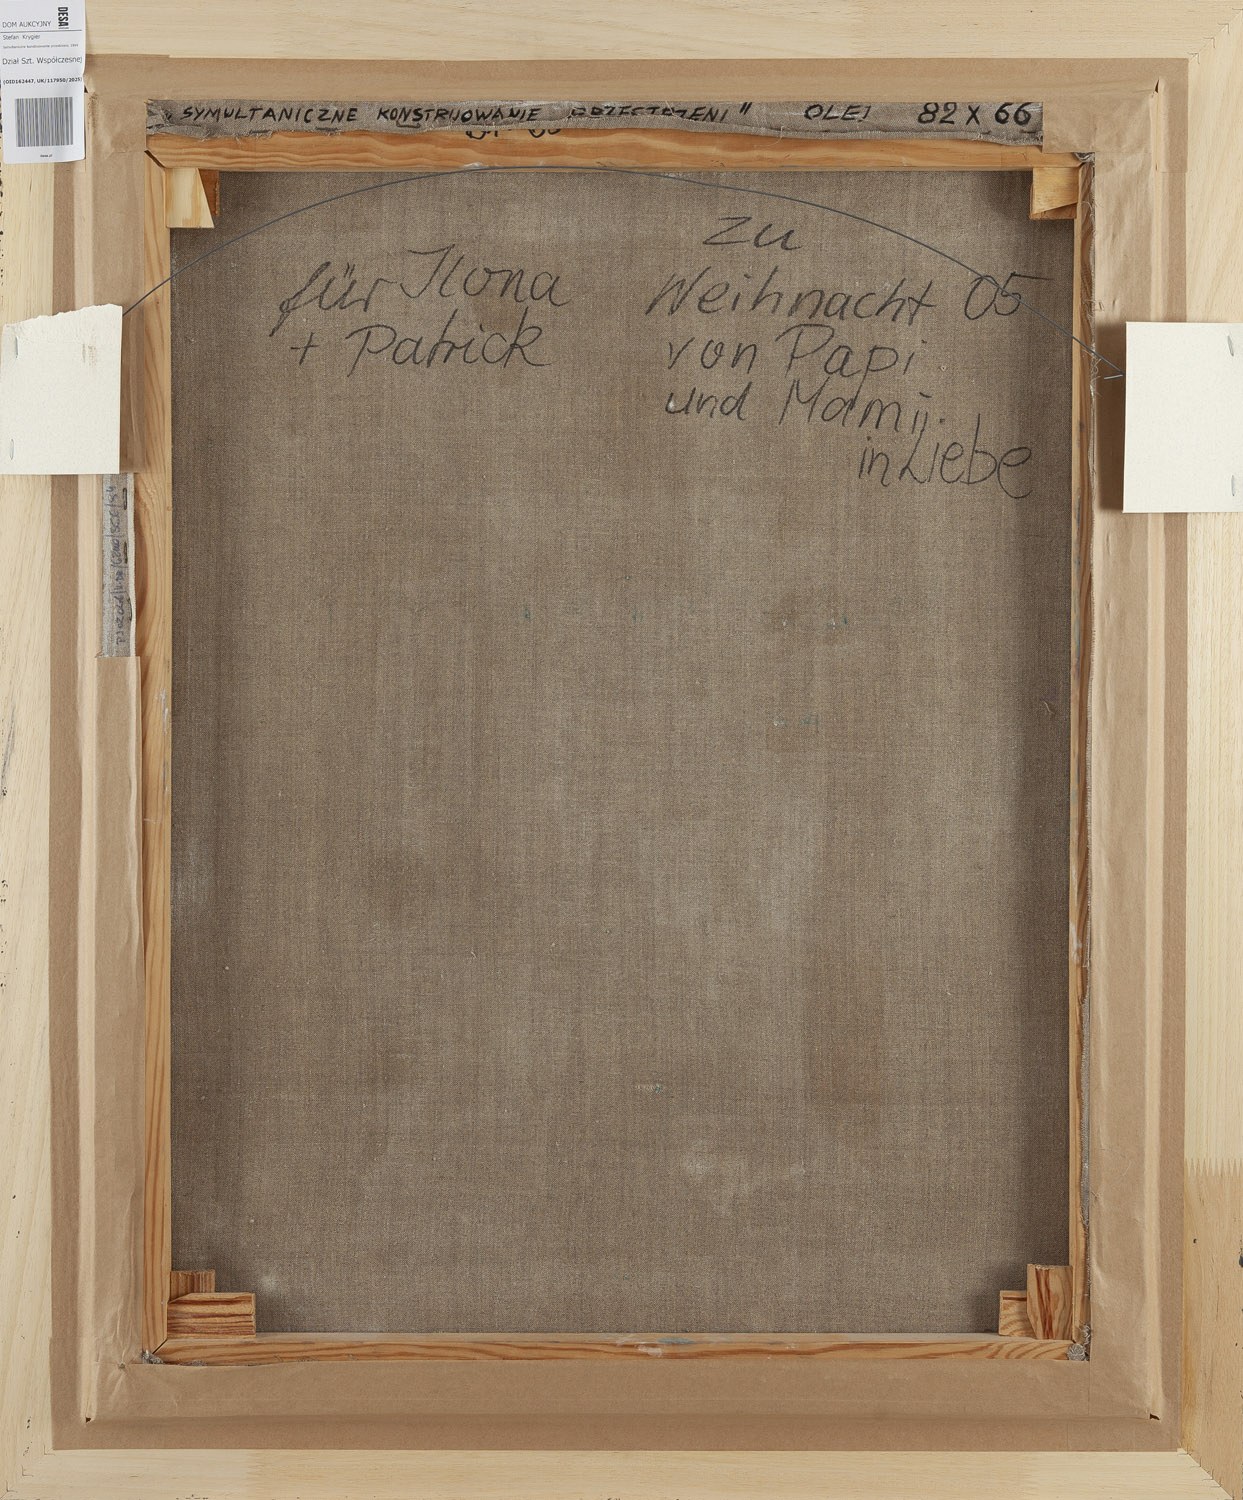 DESA
DOM AUKCYJNY
Stefan Krygier
Dział Szt. Współczesnej
"SYMULTANICZNE KONSTRUOWANIE PRZESTRZENI" OLEJ 82 X 66
für Ilona
+ Patrick
zu
Weihnacht 05
von Papi
und Mamij.
in Liebe